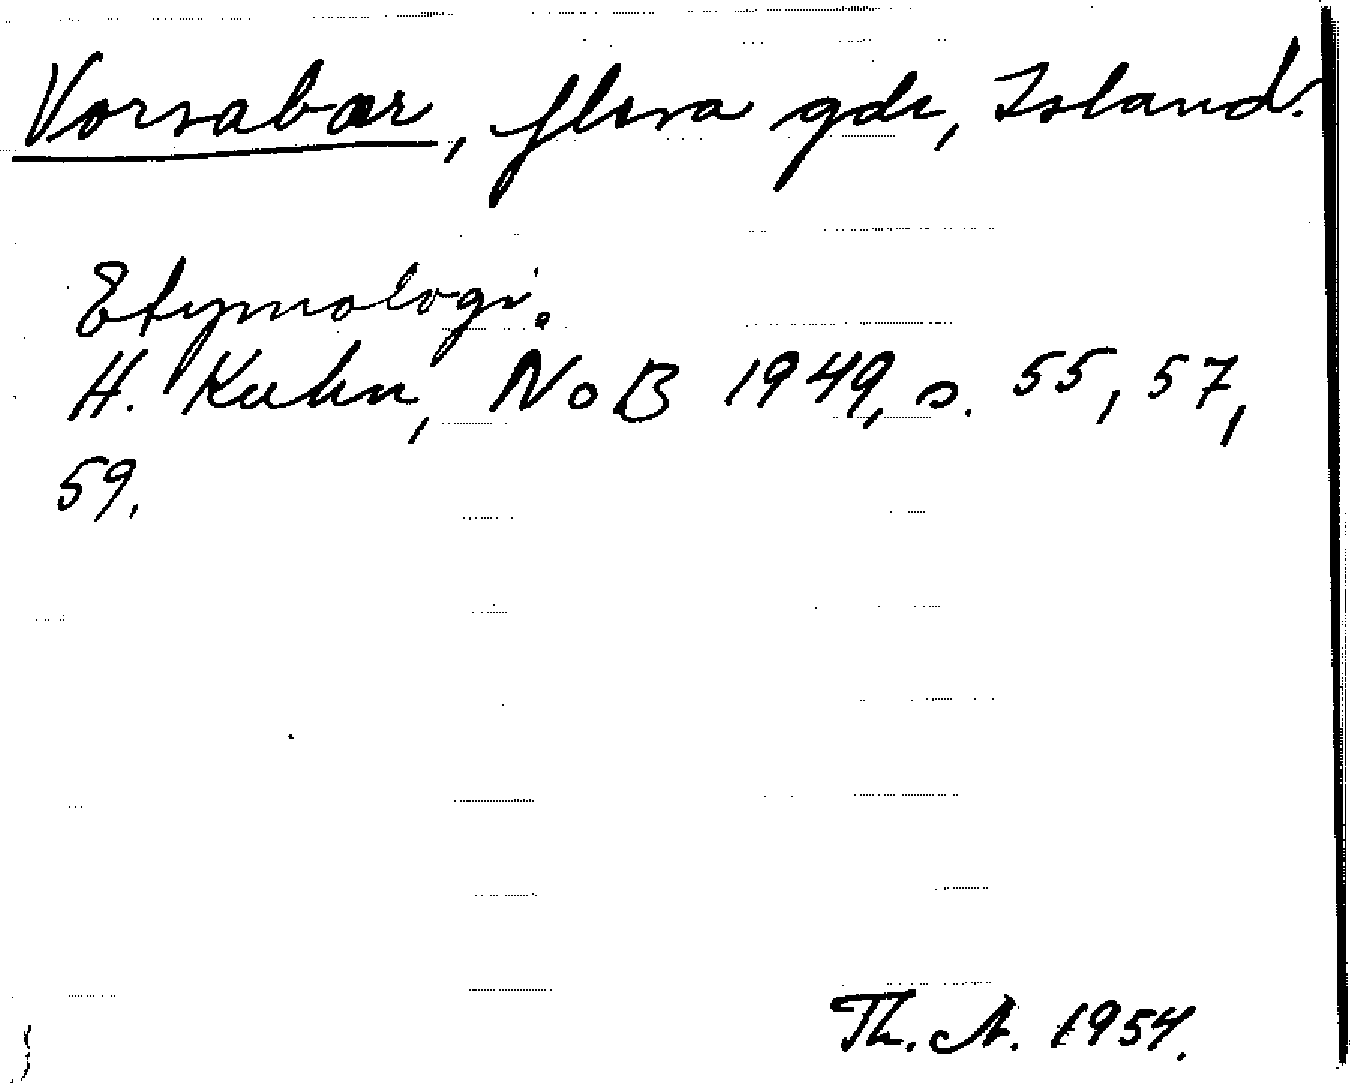 Vorsabær, flera gdr, Island.
Etymologi.
H. Kuhn, NoB 1949, s. 55, 57,
59.
Th. A. 1954.